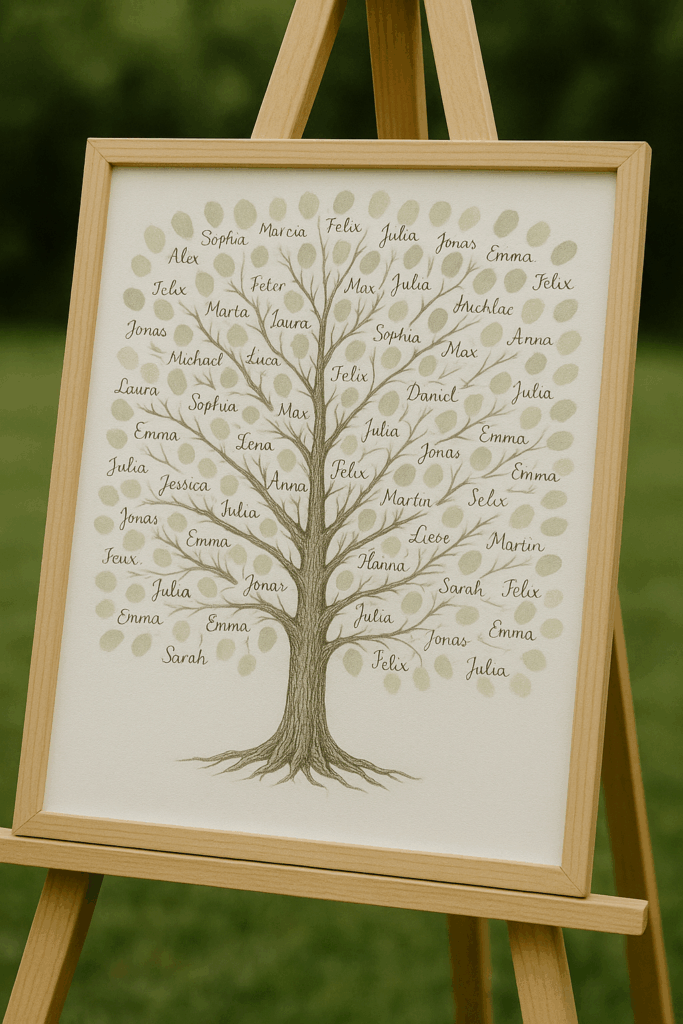 Sophia
Marcia
Felix
Julia
Jonas
Emma.
Alex
Felix
Max
Julia
Feter
Marta
Laura
Sophia
Anna
Jonas
Michael
Luca
Max
Felix
Daniel
Julia
Laura
Sophia
Max
Julia
Jonas
Emma
Emma
Lena
Felix
Emma
Julia
Jessica
Anna
Martin
Selix
Julia
Jonas
Emma
Liebe
Martin
Hanna
Julia
Jonar
Sarah
Felix
Emma
Emma
Julia
Jonas
Emma
Sarah
Felix
Julia